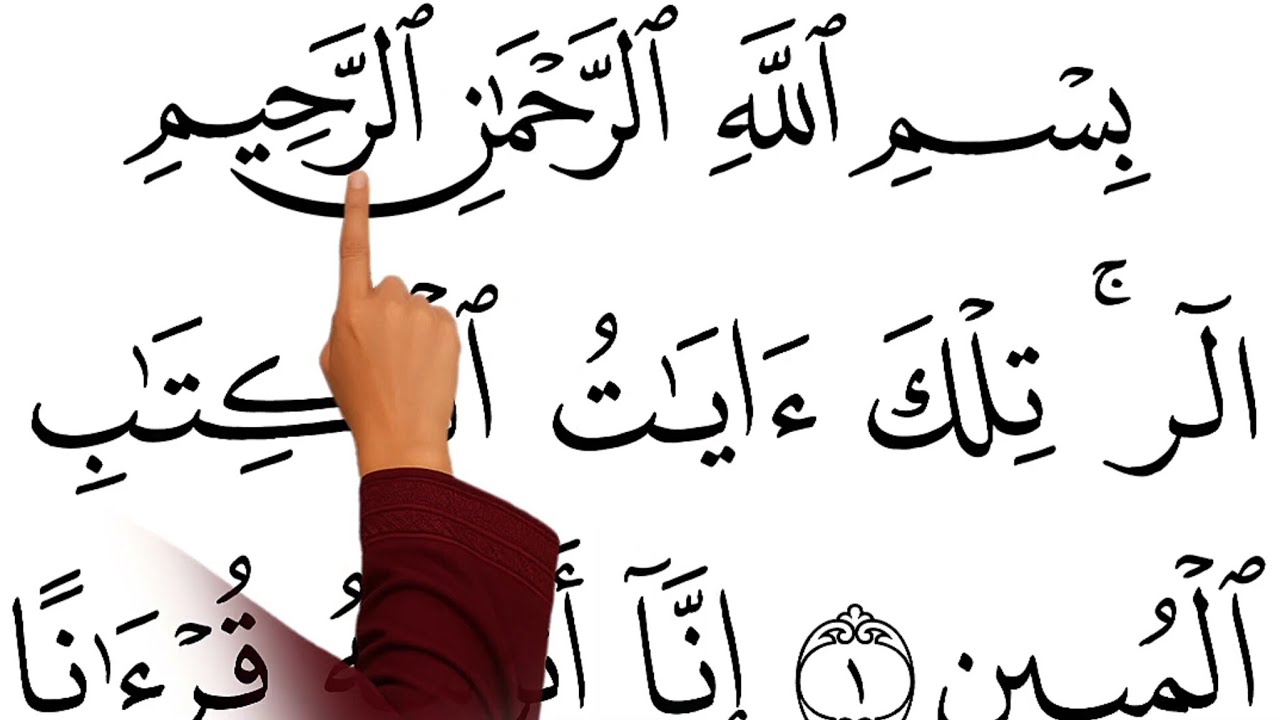 بِسْمِ ٱللَّهِ ٱلرَّحْمَٰنِ ٱلرَّحِيمِ
الٓر ۚ تِلْكَ ءَايَٰتُ ٱلْكِتَٰبِ
ٱلْمُبِينِ ١ إِنَّآ قُرْءَٰنًا